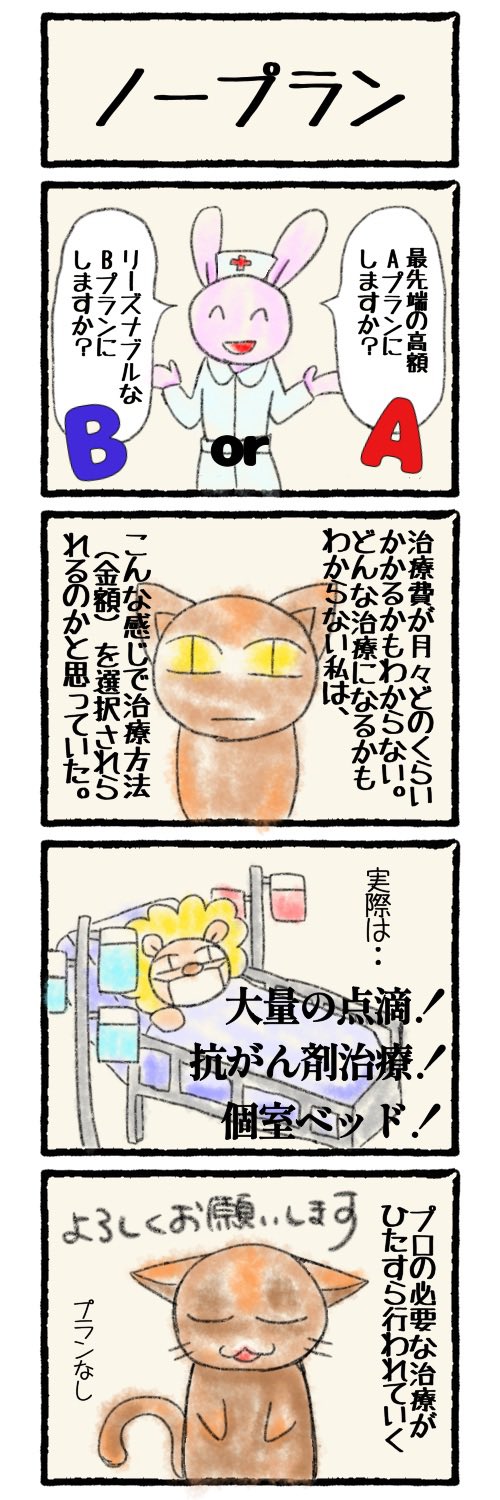 ノープラン
最先端の高額
Aプランに
しますか？
リーズナブルな
Bプランに
しますか？
B or A
治療費が月々どのくらい
かかるかもわからない。
どんな治療になるかも
わからない私は、
こんな感じで治療方法
（金額）を選択されら
れるのかと思っていた。
実際は‥
大量の点滴！
抗がん剤治療！
個室ベッド！
プロの必要な治療が
ひたすら行われていく
よろしくお願いします
プランなし